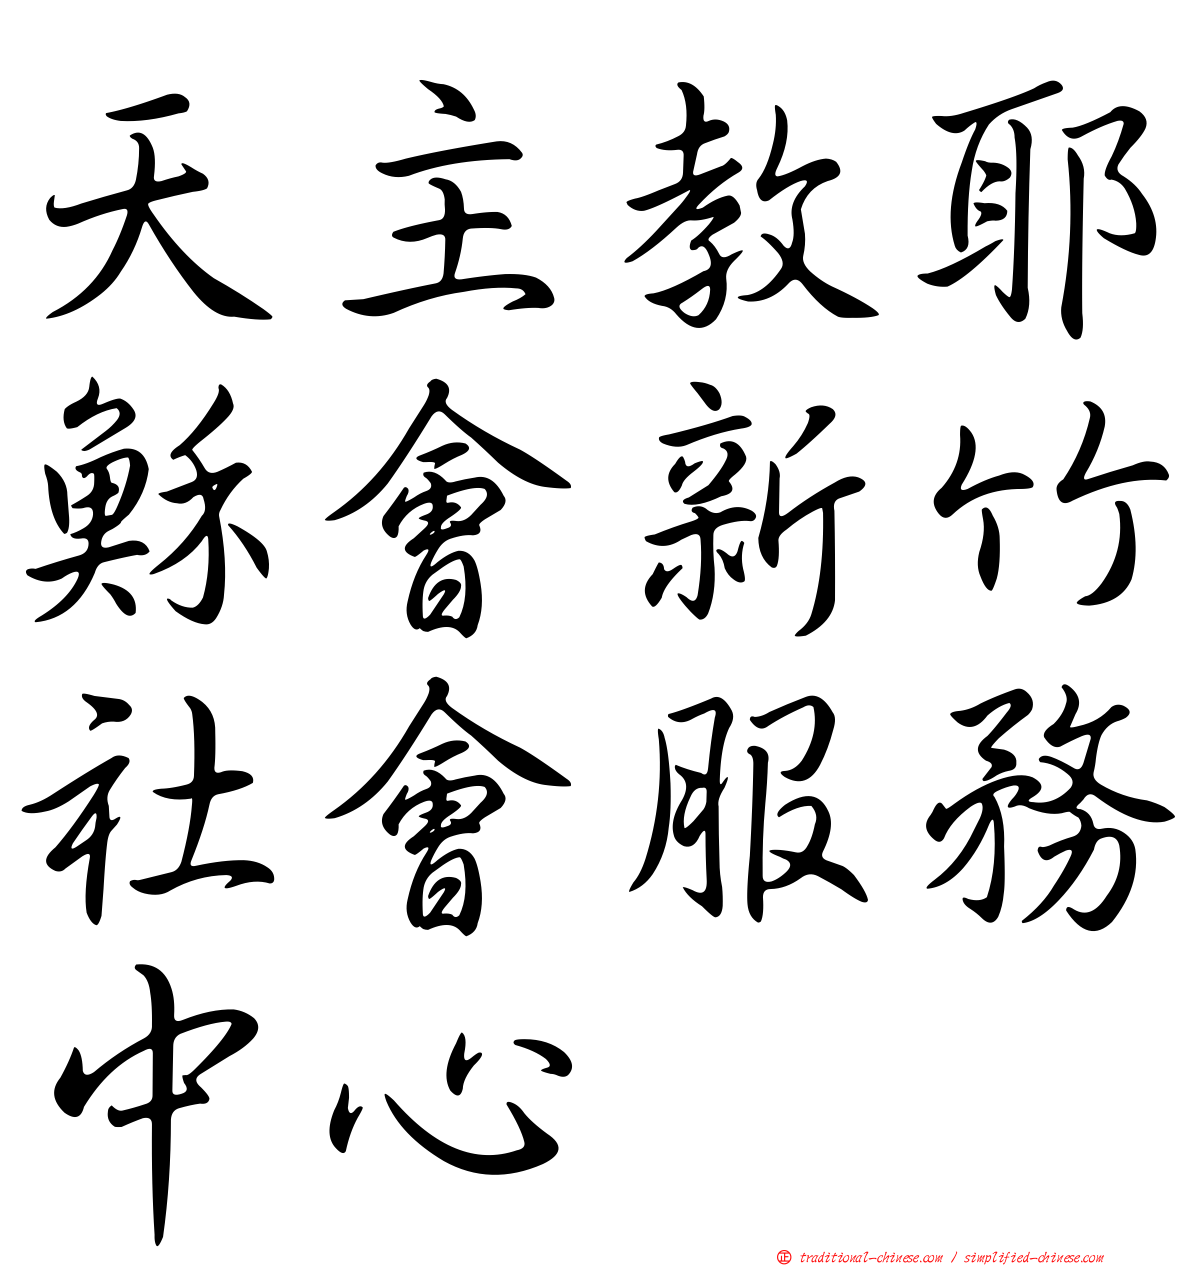 天主教耶
穌會新竹
社會服務
中心
正 traditional-chinese.com / simplified-chinese.com